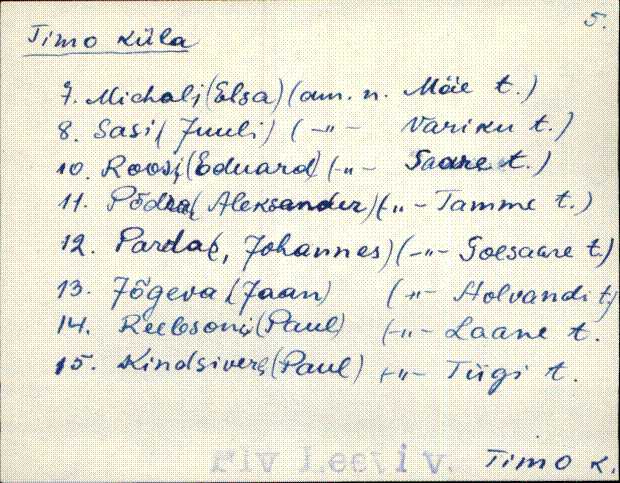 5.
Timo küla
7. Michali (Elsa) (am. n. Mäe t.)
8. Sasi (Juuli) (-"- Variku t.)
10. Roosi, (Eduard) (-"- Saare t.)
11. Põdra, (Aleksander) (-"- Tamme t.)
12. Parda, (, Johannes) (-"- Soesaare t.)
13. Jõgeva (Jaan) (-"- Holvandi t.)
14. (Paul) (-"- Laane t.
15. Kindsiver, (Paul) (-"- Tiigi t.
Timo k.